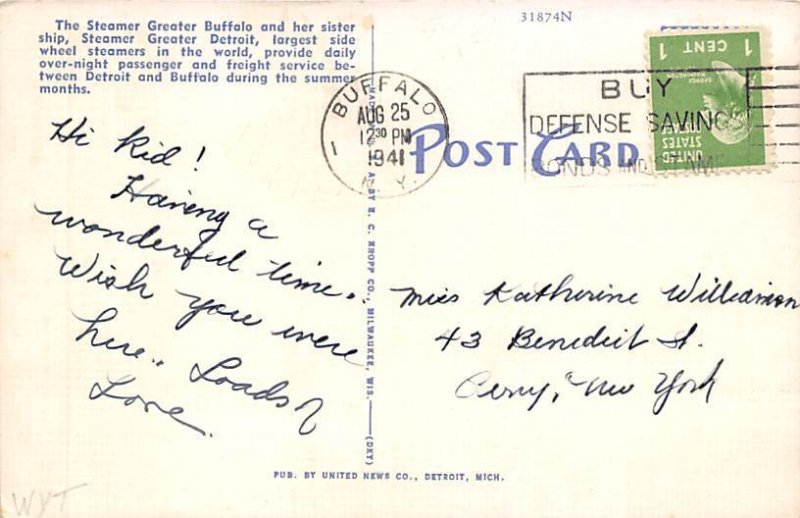 The Steamer Greater Buffalo and her sister
ship, Steamer Greater Detroit, largest side
wheel steamers in the world, provide daily
over-night passenger and freight service be-
tween Detroit and Buffalo during the summer
months.
31874N
1 CENT 1
GEORGE WASHINGTON
UNITED
STATES
BUFFALO
AUG 25
12 30 PM
1941
N. Y.
1
BUY
DEFENSE SAVINGS
BONDS AND STAMPS
POST CARD
Hi Kid!
Having a
wonderful time..
Wish you were
here.. Loads of
Love.
Miss Katherine Williamson
43 Benedict St.
Perry, New York
BY E. C. KROPP CO., MILWAUKEE, WIS. (DKY)
PUB. BY UNITED NEWS CO., DETROIT, MICH.
WYT